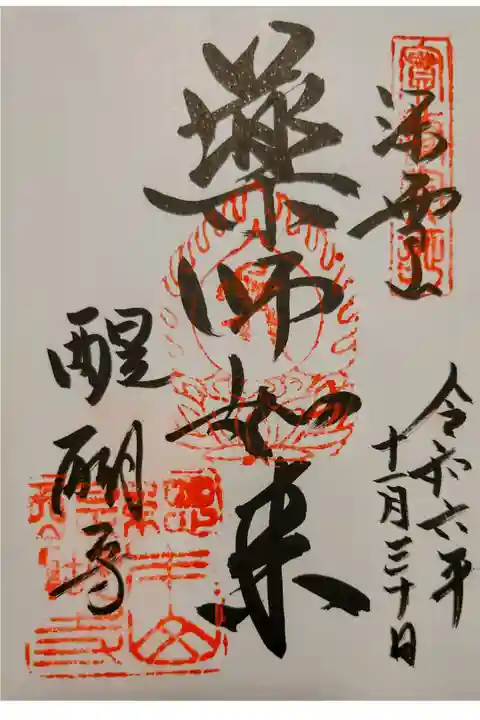 深雪山
薬師如来
醍醐寺
令和六年
十一月三十日